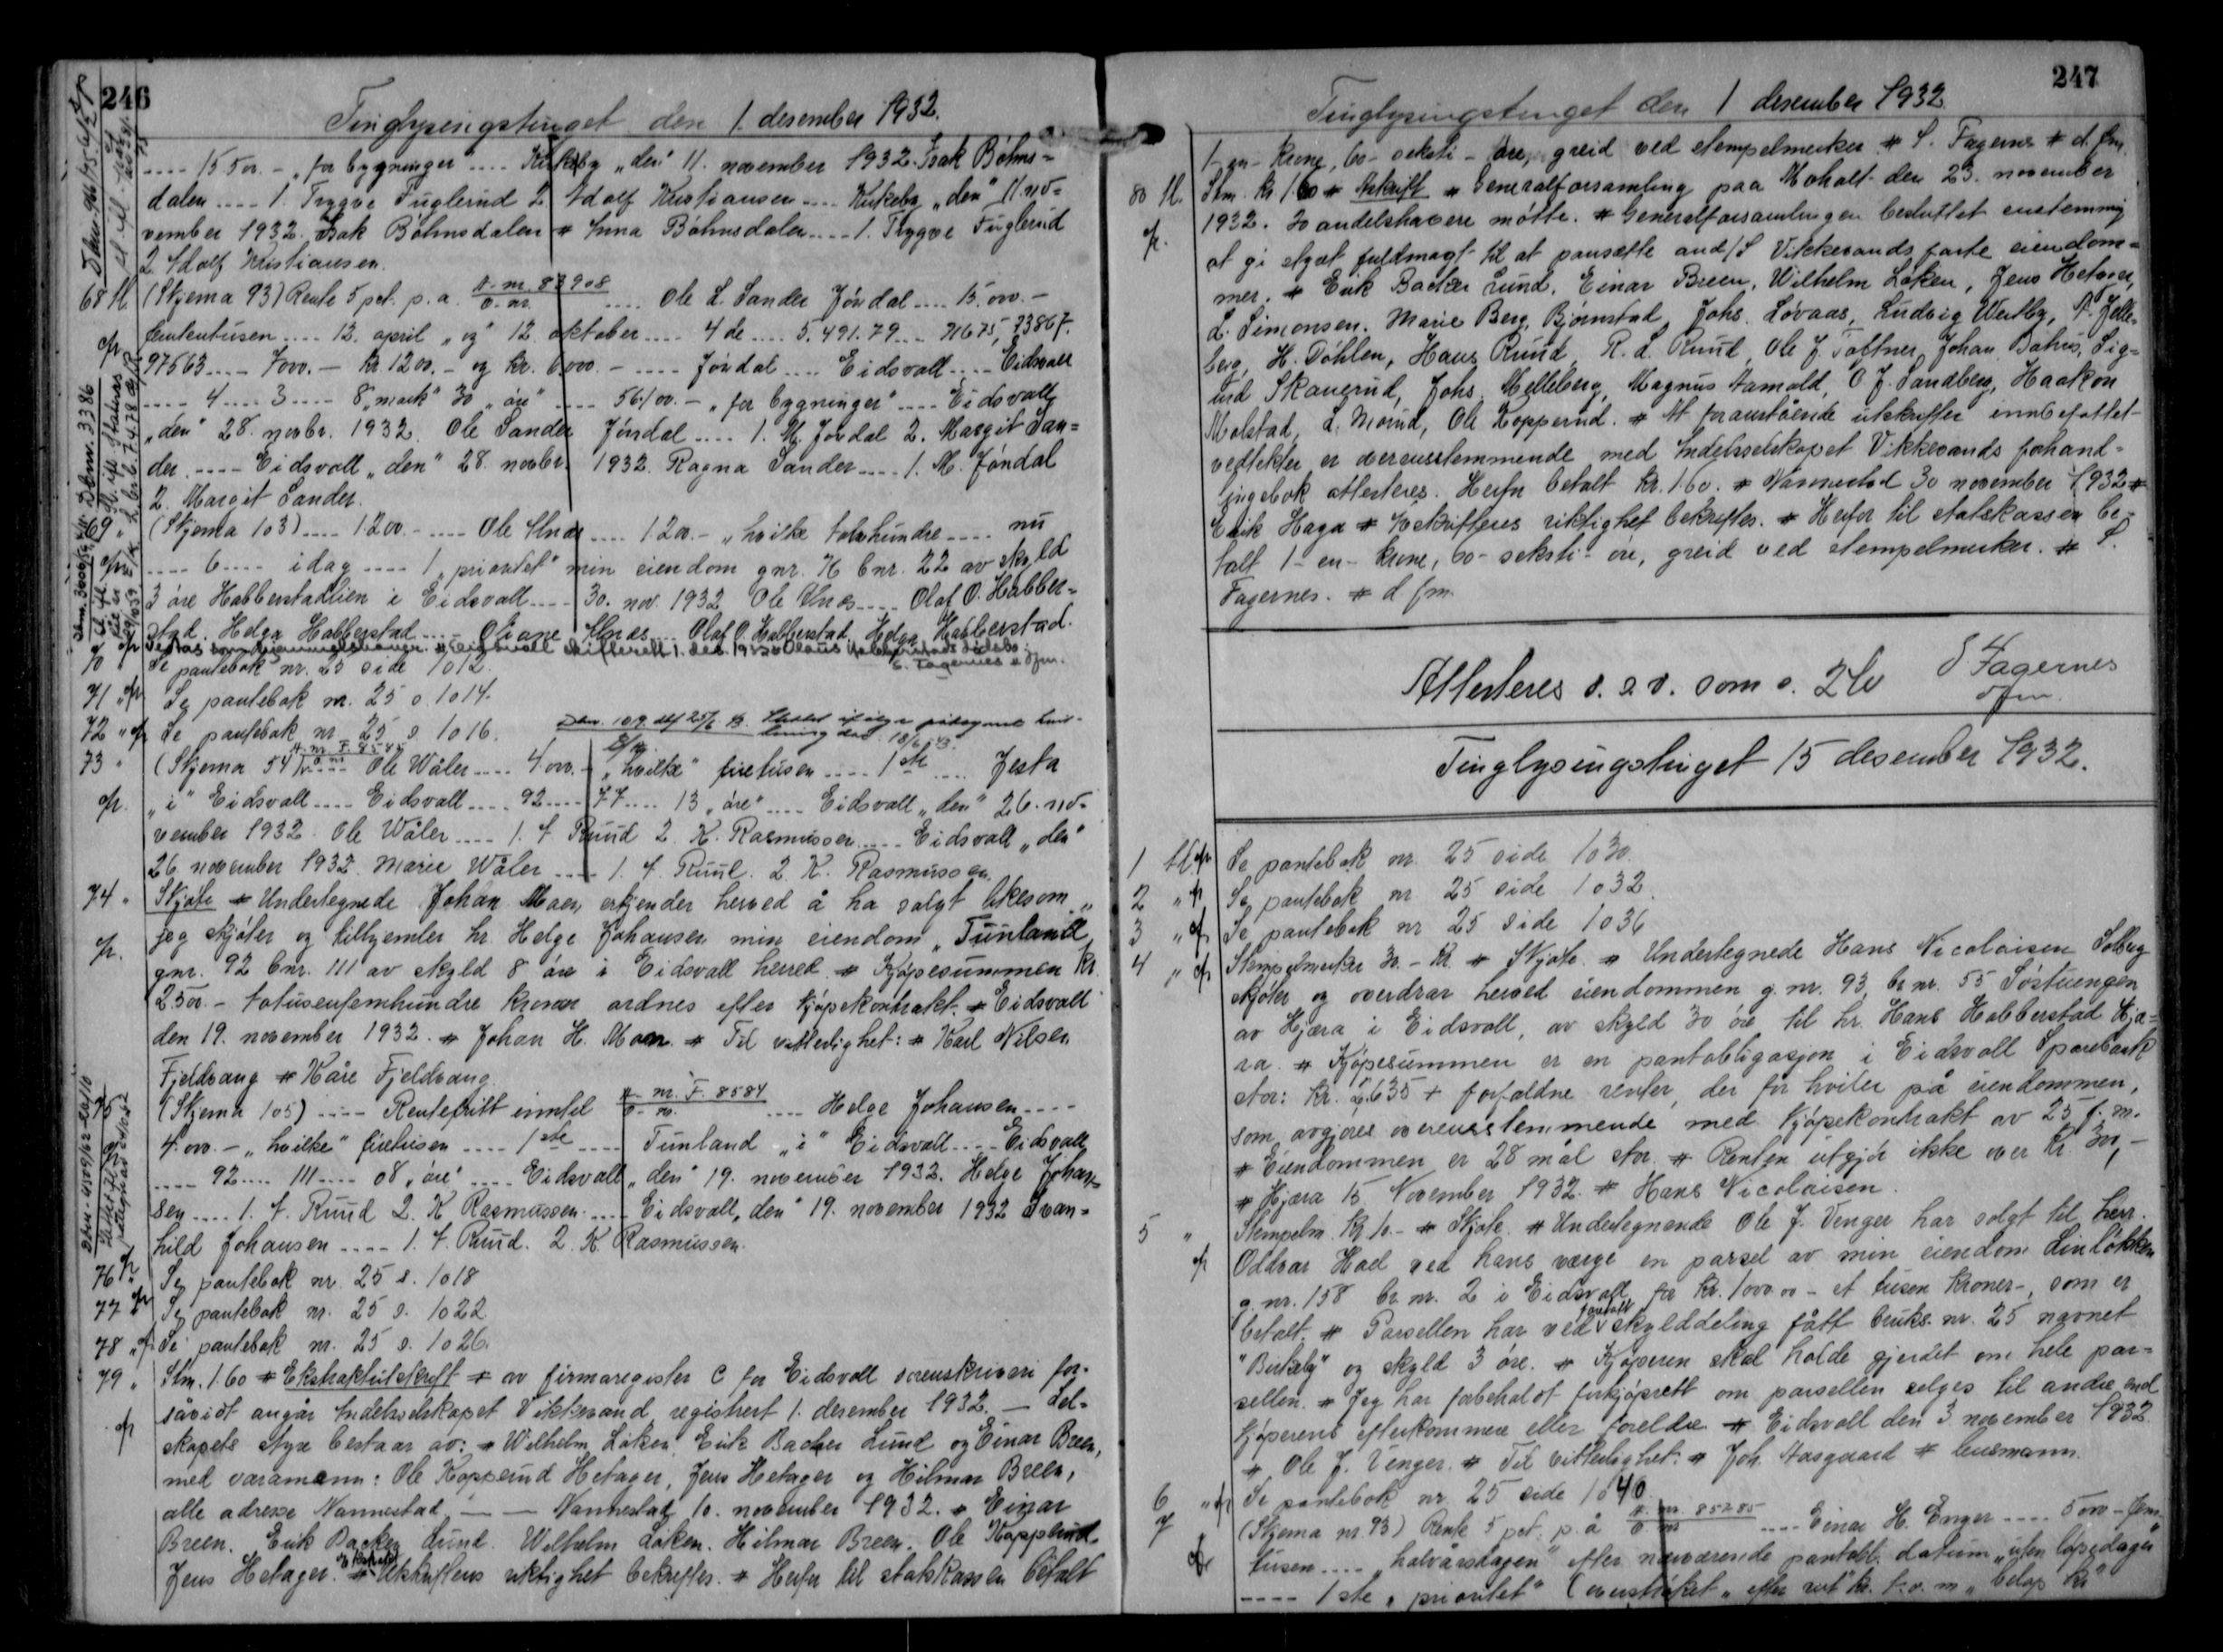 246
Tinglysingstinget den 1. desember 1932.
.... 15500.- „for bygninger" .... Kirkeby „den" 11. november 1932. Isak Böhns=
dalen .... 1. Trygve Fuglerud 2. Adolf Kristiansen .... Kirkeby „den" 11. no=
vember 1932. Isak Böhnsdalen # Anna Böhnsdalen .... 1. Trygve Fuglerud
2. Adolf Kristiansen.
68 tl. (Skjema 93) Rente 5 pct. p. a. A. nr. 83908 O. nr. .... Ole L. Sander Jöndal .... 15.000.-
femtentusen .... 12. april „og" 12. oktober .... 4 de .... 5.491.79 .... 71675, 73867.
97563 .... 7000.- kr 1200.- og kr. 6000.- .... Jöndal .... Eidsvoll .... Eidsvoll
.... 4 .... 3 .... 8 „mark" 30 „öre" .... 56100.- „for bygninger" .... Eidsvoll
„den" 28. novbr. 1932. Ole Sander Jöndal .... 1. M. Jöndal 2. Margit San=
der .... Eidsvoll „den" 28. novbr. 1932. Ragna Sander .... 1. M. Jöndal
2. Margit Sander.
69 " (Skjema 103) .... 1200.- .... Ole Unäs .... 1200.- „hvilke tolvhundre .... nu
.... 6 .... idag .... 1 „prioritet" min eiendom gnr. 76 bnr. 22 av skyld
3 öre Habberstadlien i Eidsvoll .... 30. nov. 1932 Ole Unäs .... Olaf O. Habber=
stad. Helga Habberstad .... Oliane Unäs .... Olaf O. Habberstad. Helga Habberstad.
70 " Se pantebok nr. 25 side 1012.
71 " Se pantebok nr. 25 s. 1014.
72 " Se pantebok nr. 25 s. 1016.
73 " (Skjema 54) A. nr. F. 8585 O. nr. .... Ole Wåler .... 4.000.- „hvilke" firetusen .... 1ste .... Jesta
„i" Eidsvoll .... Eidsvoll .... 92 .... 77 .... 13 „öre" .... Eidsvoll „den" 26. no-
vember 1932. Ole Wåler .... 1. A. Ruud 2. K. Rasmussen .... Eidsvoll „den"
26. november 1932. Marie Wåler .... 1. A. Ruud. 2. K. Rasmussen.
74 " Skjöte # Undertegnede Johan Moen erkjender herved å ha solgt likesom
jeg skjöter og tilhjemler hr. Helge Johansen min eiendom „Tunland"
gnr. 92 bnr. 111 av skyld 8 öre i Eidsvoll herred. # Kjöpesummen kr.
2500.- totusenfemhundre kroner ordnes efter kjöpekontrakt. # Eidsvoll
den 19. november 1932. # Johan H. Moen. # Til vitterlighet: # Karl Nilsen
Fjeldvang # Kåre Fjeldvang.
75 (Skjema 105) .... Rentefritt inntil A. nr. F. 8584 O. nr. .... Helge Johansen ....
4.000.- „hvilke" firetusen .... 1ste .... Tunland „i" Eidsvoll .... Eidsvoll
.... 92 .... 111 .... 08 „öre" .... Eidsvoll „den" 19. november 1932. Helge Johan=
sen .... 1. A. Ruud 2. K Rasmussen .... Eidsvoll „den" 19. november 1932 Svan=
hild Johansen .... 1. A. Ruud. 2. K. Rasmussen.
76 " Se pantebok nr. 25 s. 1018
77 " Se pantebok nr. 25 s. 1022
78 " Se pantebok nr. 25 s. 1026.
79 " Stm. 1.60 # Ekstraktutskrift # av firmaregister C for Eidsvoll sorenskriveri for-
såvidt angår Andelsselskapet Vikkevand, registrert 1. desember 1932. — Sel-
skapets styre bestaar av: # Wilhelm Löken, Erik Backer Lund og Einar Breen,
med varamann: Ole Kopperud Hetager, Jens Hetager og Hilmar Breen,
alle adresse Nannestad — — Nannestad, 10. november 1932. # Einar
Breen. Erik Backer Lund. Wilhelm Löken. Hilmar Breen. Ole Kopperud.
Jens Hetager. # Utskriftens riktighet bekreftes. # Herfor til statskassen betalt
247
Tinglysingstinget den 1 desember 1932
1- en- krone, 60- seksti- öre, greid ved stempelmerker # S. Fagernes # d. fm.
80 tl. Stm. kr 1.60 # Avskrift # Generalforsamling paa Moholt den 23. november
1932. 20 andelshavere mötte. # Generalforsamlingen besluttet enstemmig
at gi styret fuldmagt til at pansætte and/S Vikkevands faste eiendom=
mer. # Erik Backer Lund, Einar Breen, Wilhelm Löken, Jens Hetager,
L. Simonsen. Marie Berg, Björnstad, Johs. Lövaas, Ludvig Westby, A. Jelle-
berg, H. Döhlen, Hans Ruud, R. L. Ruud, Ole J. Toftner, Johan Bahus, Sig=
urd Skanerud, Johs. Melleberg, Magnus Aamold, O. J. Sandberg, Haakon
Molstad, L. Morud, Ole Kopperud. # At foranstående utskrifter innbefattet
vedtekter er overensstemmende med Andelsselskapet Vikkevands forhand=
lingsbok attesteres. Herfor betalt kr. 1.60. # Nannestad 30 november 1932 #
Erik Haga # Avskriftens riktighet bekreftes. # Herfor til statskassen be-
talt 1- en- krone, 60- seksti- öre, greid ved stempelmerker. # S.
Fagernes. # d. fm.
Attesteres s. s. v. som s. 240
S Fagernes
dfm.
Tinglysingstinget 15 desember 1932.
1 tl. Se pantebok nr. 25 side 1030.
2 " Se pantebok nr 25 side 1032.
3 " Se pantebok nr 25 side 1036
4 " Stempelmerker 30.- kr # Skjöte. # Undertegnede Hans Nicolaisen Solberg
skjöter og overdrar herved eiendommen g. nr. 93, br nr. 55 Söstuengen
av Hjæra i Eidsvoll, av skyld 30 öre, til hr. Hans Habberstad Hjæ=
ra. # Kjöpesummen er en pantobligasjon i Eidsvoll Sparebank
stor: kr. 2,635 + forfaldne renter, der for hviler på eiendommen,
som avgjöres overensstemmende med kjöpekontrakt av 25 f. m.
# Eiendommen er 28 mål stor. # Renten utgjör ikke over kr. 300,-
# Hjæra 15. November 1932. # Hans Nicolaisen.
5 " Stempelm. kr 10.- # Skjöte # Undertegnende Ole J. Venger har solgt til herr.
Oddvar Hoel ved hans værge en parsel av min eiendom Linlökken
g. nr. 158 br. nr. 2 i Eidsvoll for kr. 1000.00 - et tusen kroner-, som er
betalt. # Parsellen har ved skylddeling fått bruks. nr. 25 navnet
"Birkely" og skyld 3 öre. # Kjöperen skal holde gjerdet om hele par=
sellen. # Jeg har forbeholdt forkjöpsrett om parsellen selges til andre end
kjöperens efterkommere eller foreldre # Eidsvoll den 3 november 1932.
# Ole J. Venger. # Til vitterlighet: # Joh. Aasgaard # lensmann.
6 " Se pantebok nr 25 side 1040
7 (Skjema nr. 93) Rente 5 pct. p. å A. nr. 85285 O. nr .... Einar H. Enger .... 5000- fem
tusen .... „halvårsdagen" efter nærværende pantobl. datum „uten löpedager"
.... 1ste „prioritet" (overströket „efter rest" kr. t. o. m „belöp kr"